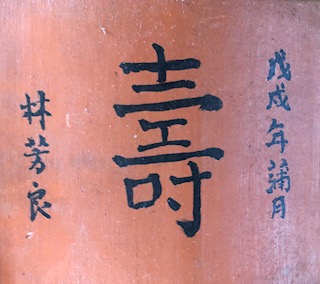 戊戌年蒲月
壽
林芳良